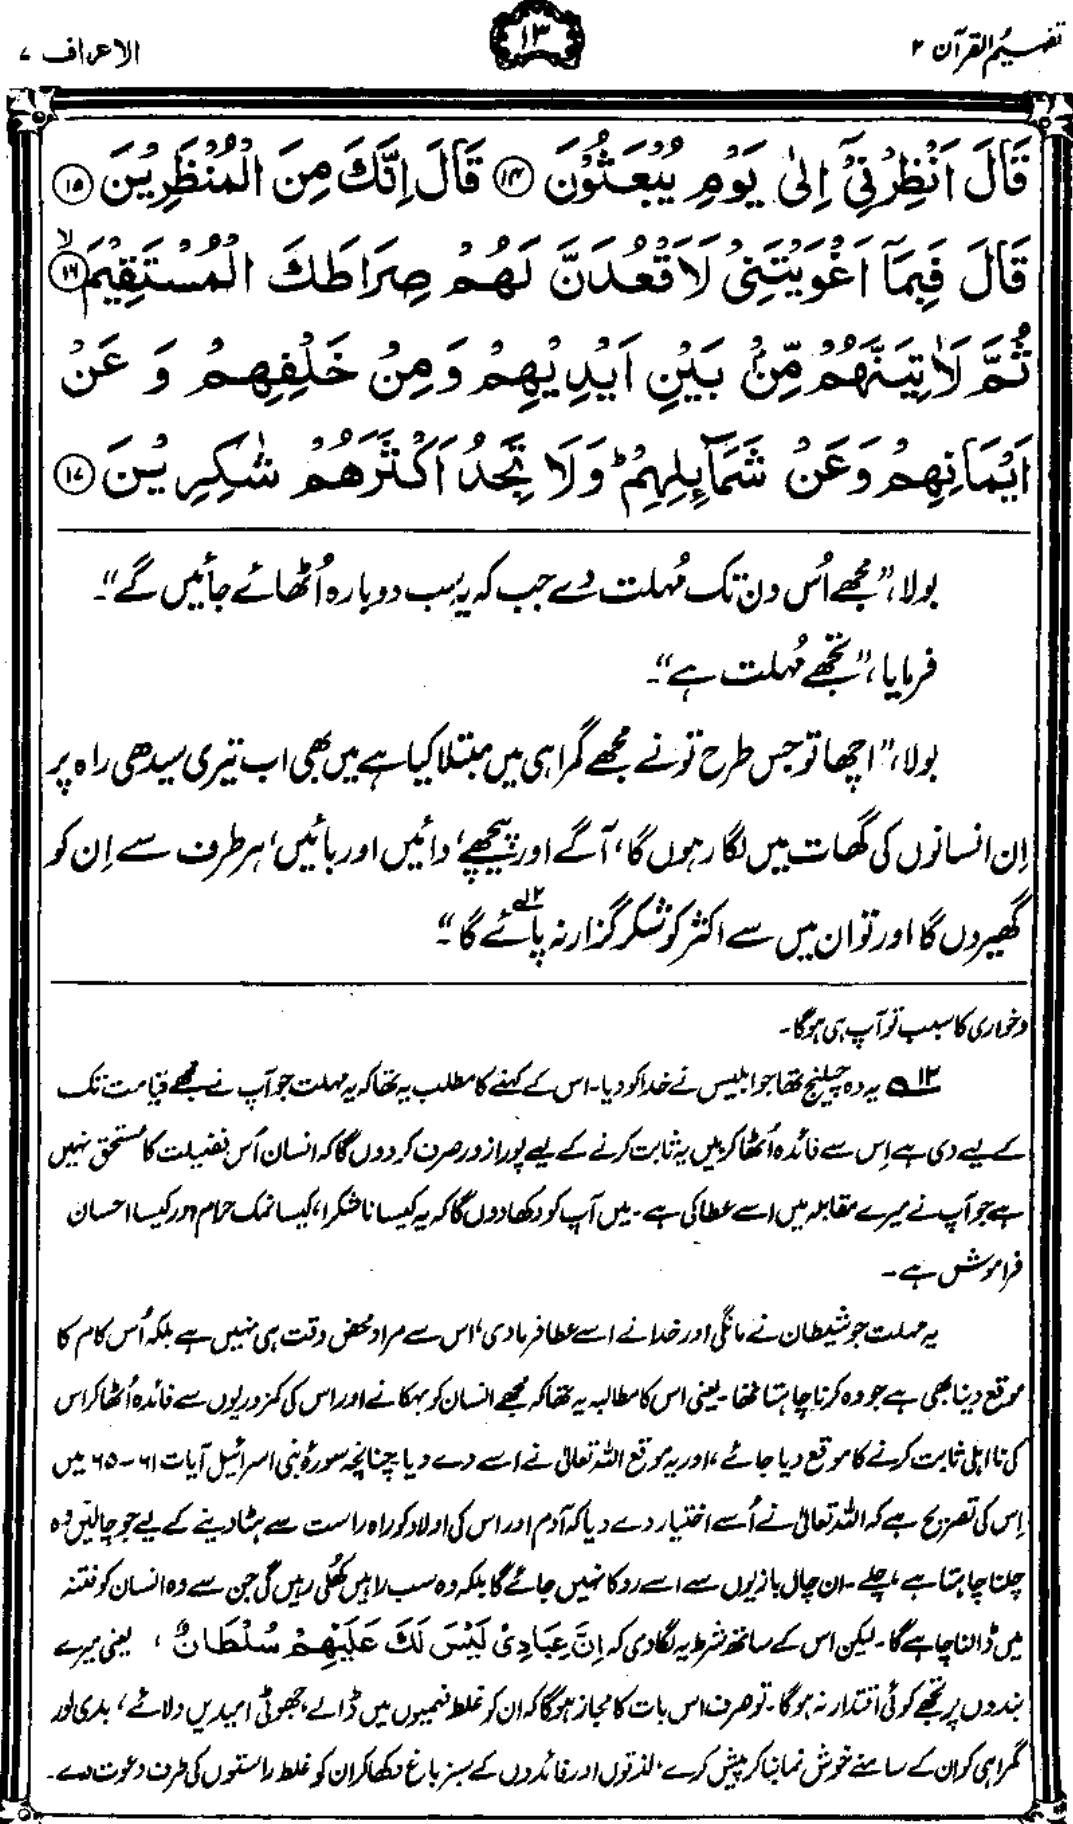 تفہیم القرآن ۲
۱۳
الاعراف ۷
قَالَ اَنْظِرْنِيْٓ اِلٰى يَوْمِ يُبْعَثُوْنَ ۝۱۴ قَالَ اِنَّكَ مِنَ الْمُنْظَرِيْنَ ۝۱۵
قَالَ فَبِمَآ اَغْوَيْتَنِيْ لَاَقْعُدَنَّ لَهُمْ صِرَاطَكَ الْمُسْتَقِيْمَ ۝۱۶ۙ
ثُمَّ لَاٰتِيَنَّهُمْ مِّنْۢ بَيْنِ اَيْدِيْهِمْ وَمِنْ خَلْفِهِمْ وَ عَنْ
اَيْمَانِهِمْ وَعَنْ شَمَآئِلِهِمْ ؕ وَلَا تَجِدُ اَكْثَرَهُمْ شٰكِرِيْنَ ۝۱۷
بولا، ”مجھے اُس دن تک مُہلت دے جب کہ یہ سب دوبارہ اُٹھائے جائیں گے“۔
فرمایا، ”تجھے مُہلت ہے“۔
بولا، ”اچھا تو جس طرح تُو نے مجھے گمراہی میں مبتلا کیا ہے میں بھی اب تیری سیدھی راہ پر
اِن انسانوں کی گھات میں لگا رہوں گا، آگے اور پیچھے، دائیں اور بائیں، ہر طرف سے اِن کو
گھیروں گا اور تُو ان میں سے اکثر کو شکر گزار نہ پائے گا ۱۲؎“۔
و خواری کا سبب تو آپ ہی ہوگا۔
۱۲؎ یہ وہ چیلنج تھا جو ابلیس نے خدا کو دیا۔ اس کے کہنے کا مطلب یہ تھا کہ یہ مہلت جو آپ نے مجھے قیامت تک
کے لیے دی ہے اِس سے فائدہ اُٹھا کر میں یہ ثابت کرنے کے لیے پورا زور صرف کر دوں گا کہ انسان اُس فضیلت کا مستحق نہیں
ہے جو آپ نے میرے مقابلہ میں اسے عطا کی ہے۔ میں آپ کو دکھا دوں گا کہ یہ کیسا ناشکرا، کیسا نمک حرام اور کیسا احسان
فراموش ہے۔
یہ مہلت جو شیطان نے مانگی اور خدا نے اسے عطا فرما دی، اس سے مراد محض وقت ہی نہیں ہے بلکہ اُس کام کا
موقع دینا بھی ہے جو وہ کرنا چاہتا تھا۔ یعنی اس کا مطالبہ یہ تھا کہ مجھے انسان کو بہکانے اور اس کی کمزوریوں سے فائدہ اُٹھا کر اس
کی نااہلی ثابت کرنے کا موقع دیا جائے، اور یہ موقع اللہ تعالیٰ نے اسے دے دیا۔ چنانچہ سورۂ بنی اسرائیل آیات ۶۱-۶۵ میں
اِس کی تصریح ہے کہ اللہ تعالیٰ نے اُسے اختیار دے دیا کہ آدم اور اس کی اولاد کو راہ راست سے ہٹا دینے کے لیے جو چالیں وہ
چلنا چاہتا ہے، چلے۔ ان چال بازیوں سے اسے روکا نہیں جائے گا بلکہ وہ سب راہیں کُھلی رہیں گی جن سے وہ انسان کو فتنہ
میں ڈالنا چاہے گا۔ لیکن اس کے ساتھ شرط یہ لگا دی کہ اِنَّ عِبَادِيْ لَيْسَ لَكَ عَلَيْهِمْ سُلْطَانٌ، یعنی میرے
بندوں پر تجھے کوئی اقتدار نہ ہوگا۔ تو صرف اس بات کا مجاز ہوگا کہ ان کو غلط فہمیوں میں ڈالے، جھوٹی امیدیں دلائے، بدی اور
گمراہی کو ان کے سامنے خوش نما بنا کر پیش کرے، لذتوں اور فائدوں کے سبز باغ دکھا کر ان کو غلط راستوں کی طرف دعوت دے۔